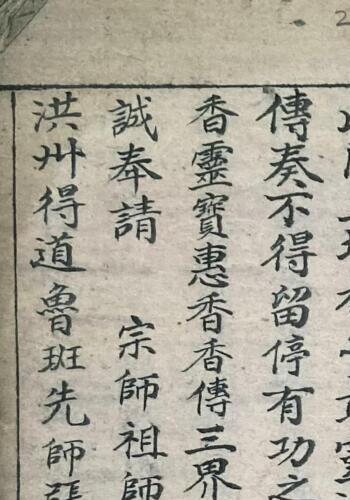 傳奏不得留停有功之
香靈寶惠香香傳三界
誠奉請 宗師祖師
洪州得道魯班先師張